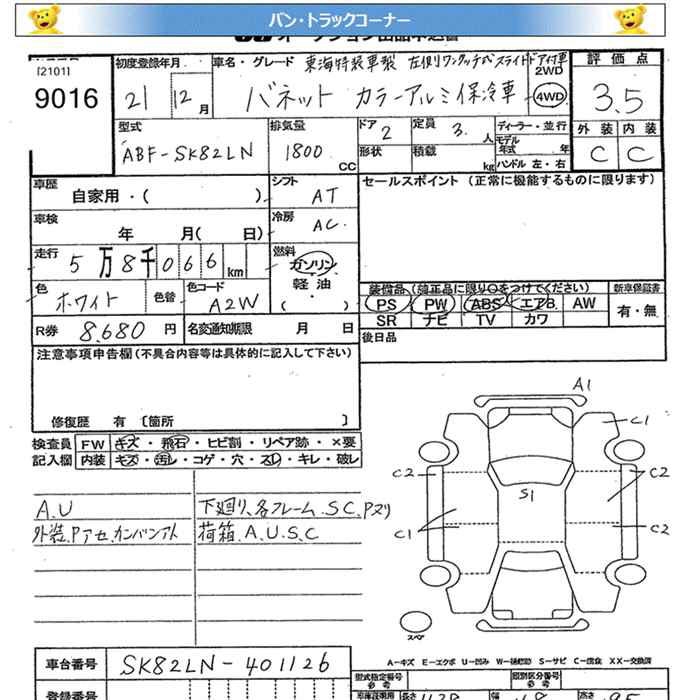 バン・トラックコーナー
オークション出品申込書
[2101]
9016
初度登録年月 車名・グレード 東海特装車製 左側リワンタッチ式スライドドア付車
21 12月 バネット カラーアルミ保冷車 2WD 4WD
評価点
3.5
外装 内装
C C
型式 排気量 ドア 2 定員 3.人 ディーラー・並行
ABF-SK82LN 1800CC 形状 積載 kg モデル年式 年
ハンドル 左・右
車歴 自家用・( ) シフト AT セールスポイント (正常に機能するものに限ります)
車検 年 月( 日) 冷房 AC
走行 5万8千066km 燃料 ガソリン 軽油・( )
色 ホワイト 色替 色コード A2W
装備品 (純正品に限り○をつけてください) 新車保証書
PS PW ABS エアB AW 有・無
SR ナビ TV カワ
R券 8,680円 名変通知期限 月 日
後日品
注意事項申告欄 (不具合内容等は具体的に記入して下さい)
修復歴 有 [箇所 ]
検査員 FW キズ・飛石・ヒビ割・リペア跡・×要
記入欄 内装 キズ・汚レ・コゲ・穴・スレ・キレ・破レ
A.U 下廻り、各フレーム.SC.Pヌリ
外装.Pアセ.カンバンアト 荷箱.A.U.S.C
A1
C1
C2 C2
S1
C1 C2
スペア
A-キズ E-エクボ U-凹み W-補修跡 S-サビ C-腐食 XX-交換済
車台番号 SK82LN-401126
登録番号
型式指定番号 参考 類別区分番号 参考
長さ 幅 高さ